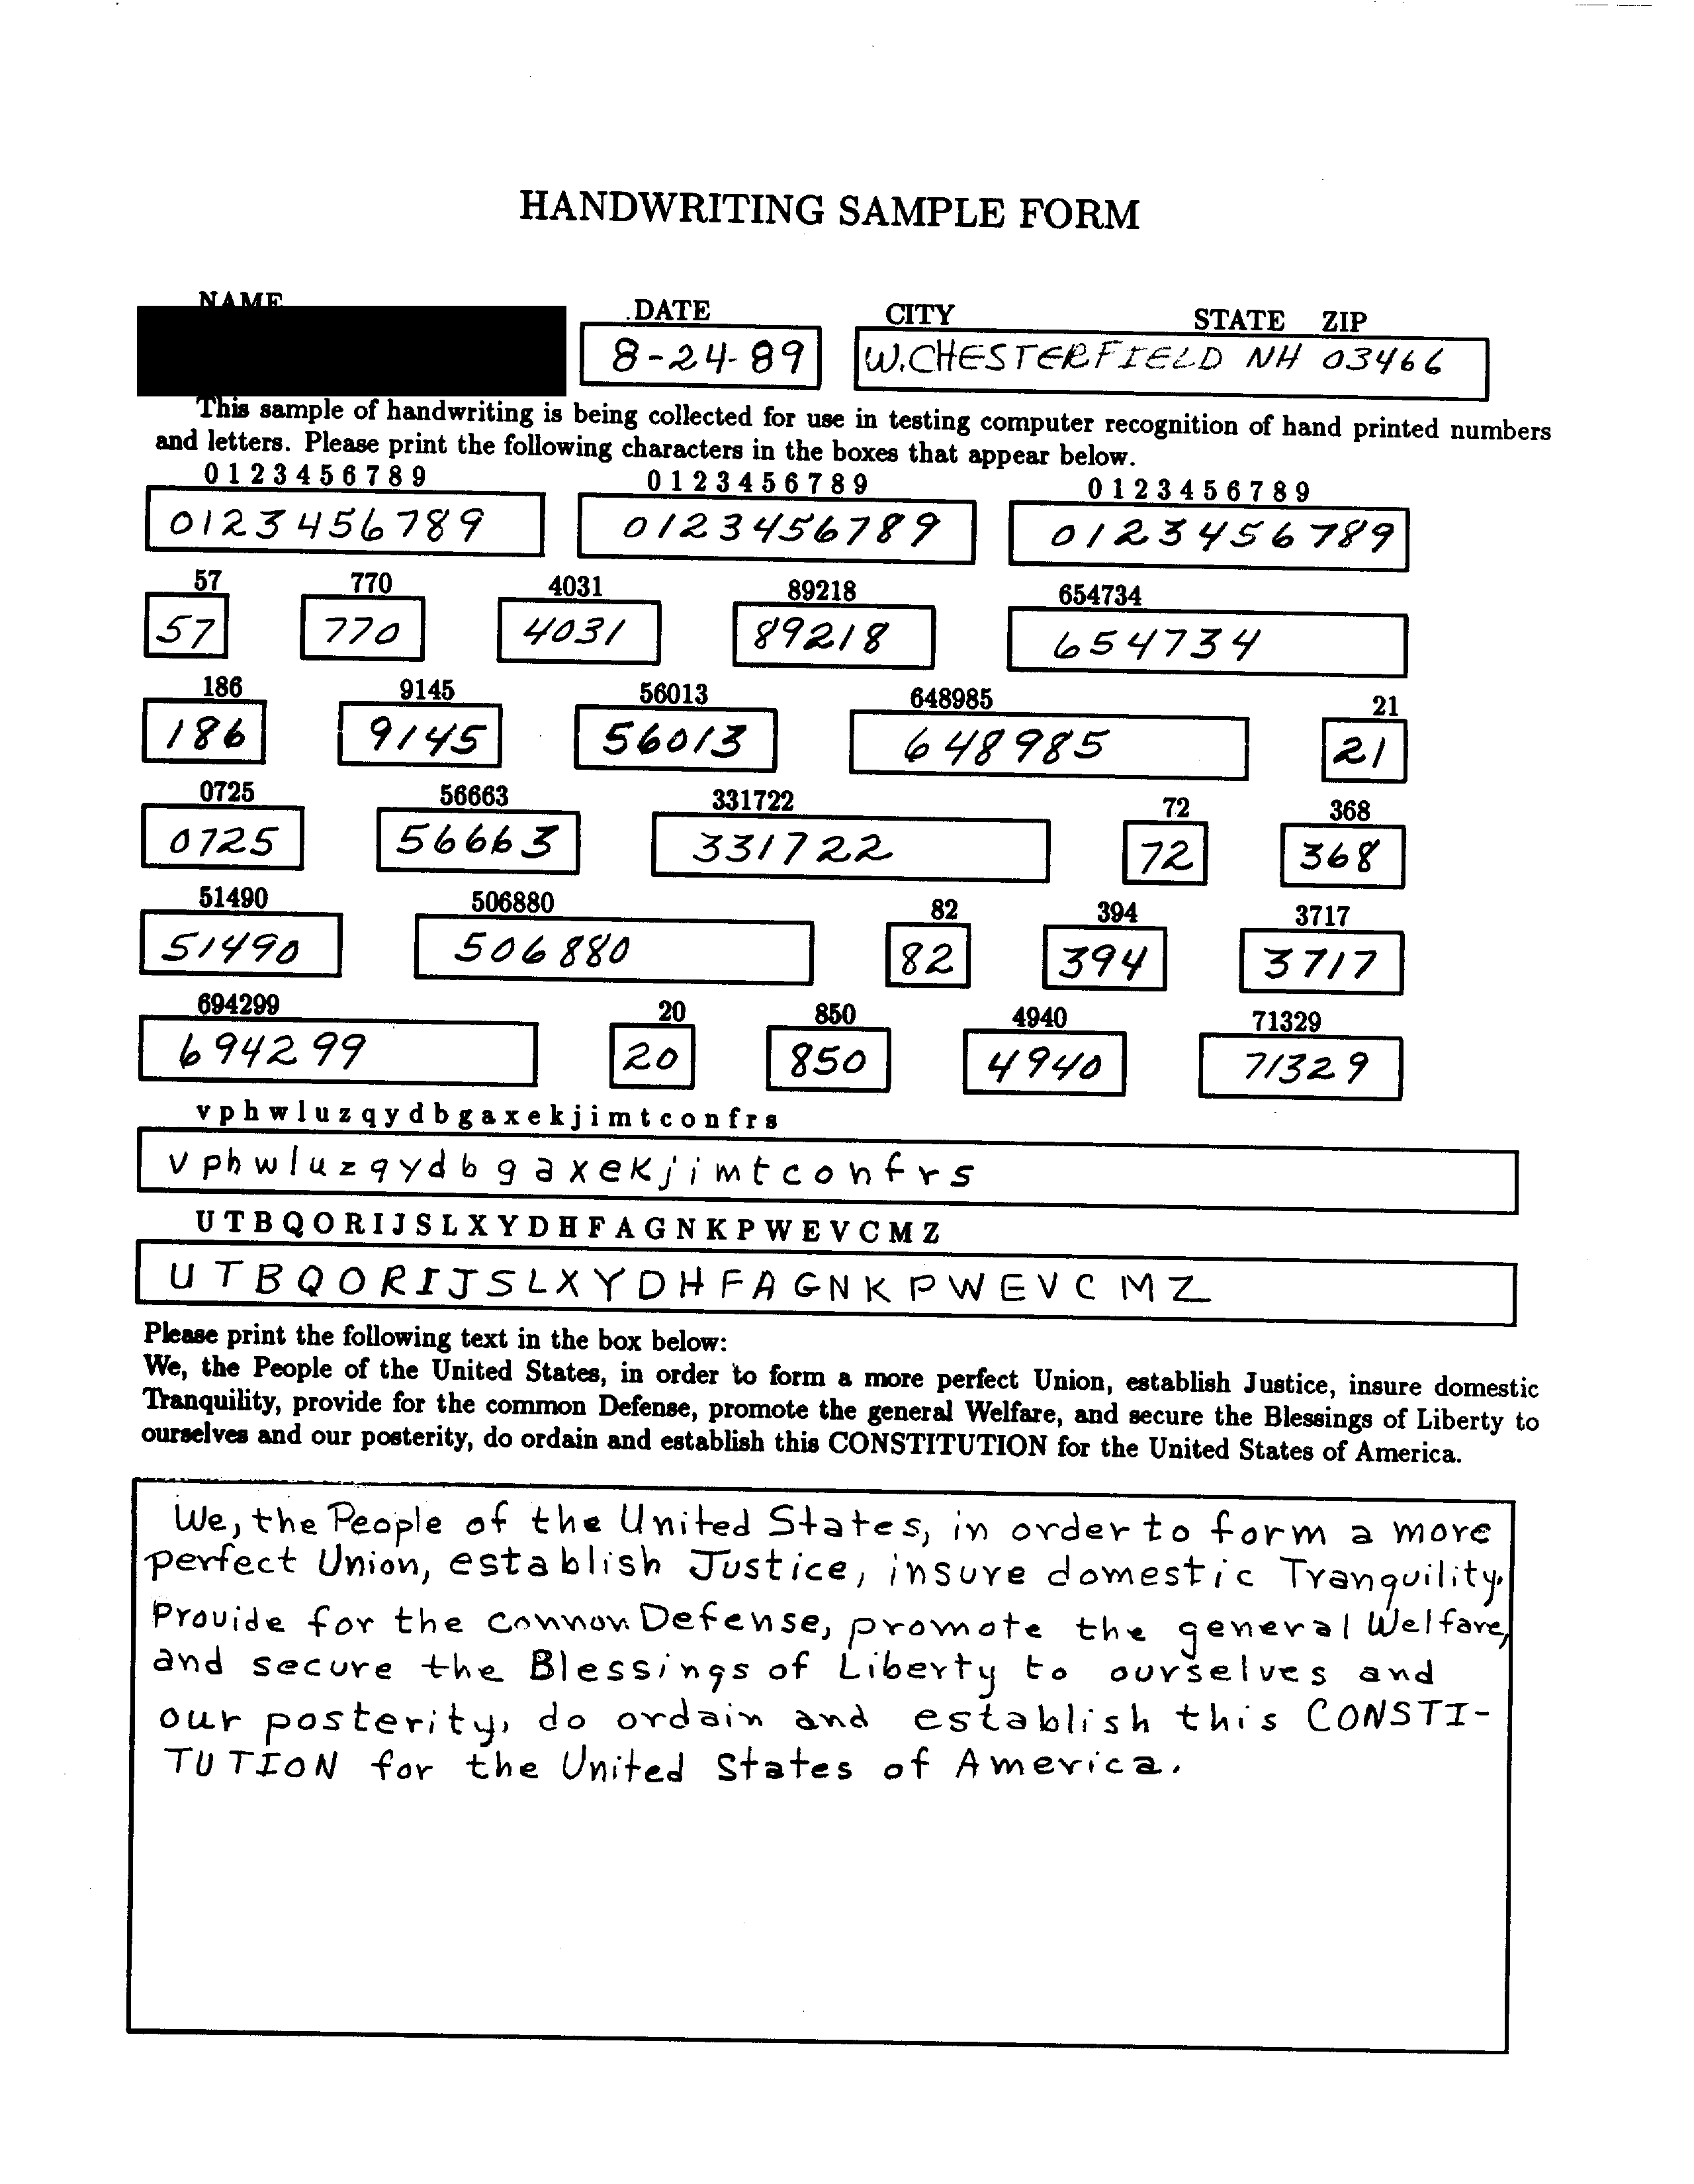 HANDWRITING SAMPLE FORM
NAME DATE CITY STATE ZIP
8-24-89 W.CHESTERFIELD NH 03466
This sample of handwriting is being collected for use in testing computer recognition of hand printed numbers
and letters. Please print the following characters in the boxes that appear below.
0 1 2 3 4 5 6 7 8 9 0 1 2 3 4 5 6 7 8 9 0 1 2 3 4 5 6 7 8 9
0123456789 0123456789 0123456789
57 770 4031 89218 654734
57 770 4031 89218 654734
186 9145 56013 648985 21
186 9145 56013 648985 21
0725 56663 331722 72 368
0725 56663 331722 72 368
51490 506880 82 394 3717
51490 506880 82 394 3717
694299 20 850 4940 71329
694299 20 850 4940 71329
v p h w l u z q y d b g a x e k j i m t c o n f r s
v p h w l u z q y d b g a x e k j i m t c o n f r s
U T B Q O R I J S L X Y D H F A G N K P W E V C M Z
U T B Q O R I J S L X Y D H F A G N K P W E V C M Z
Please print the following text in the box below:
We, the People of the United States, in order to form a more perfect Union, establish Justice, insure domestic
Tranquility, provide for the common Defense, promote the general Welfare, and secure the Blessings of Liberty to
ourselves and our posterity, do ordain and establish this CONSTITUTION for the United States of America.
We, the People of the United States, in order to form a more
perfect Union, establish Justice, insure domestic Tranquility,
Provide for the connon Defense, promote the general Welfare,
and secure the Blessings of Liberty to ourselves and
our posterity, do ordain and establish this CONSTI-
TUTION for the United States of America.